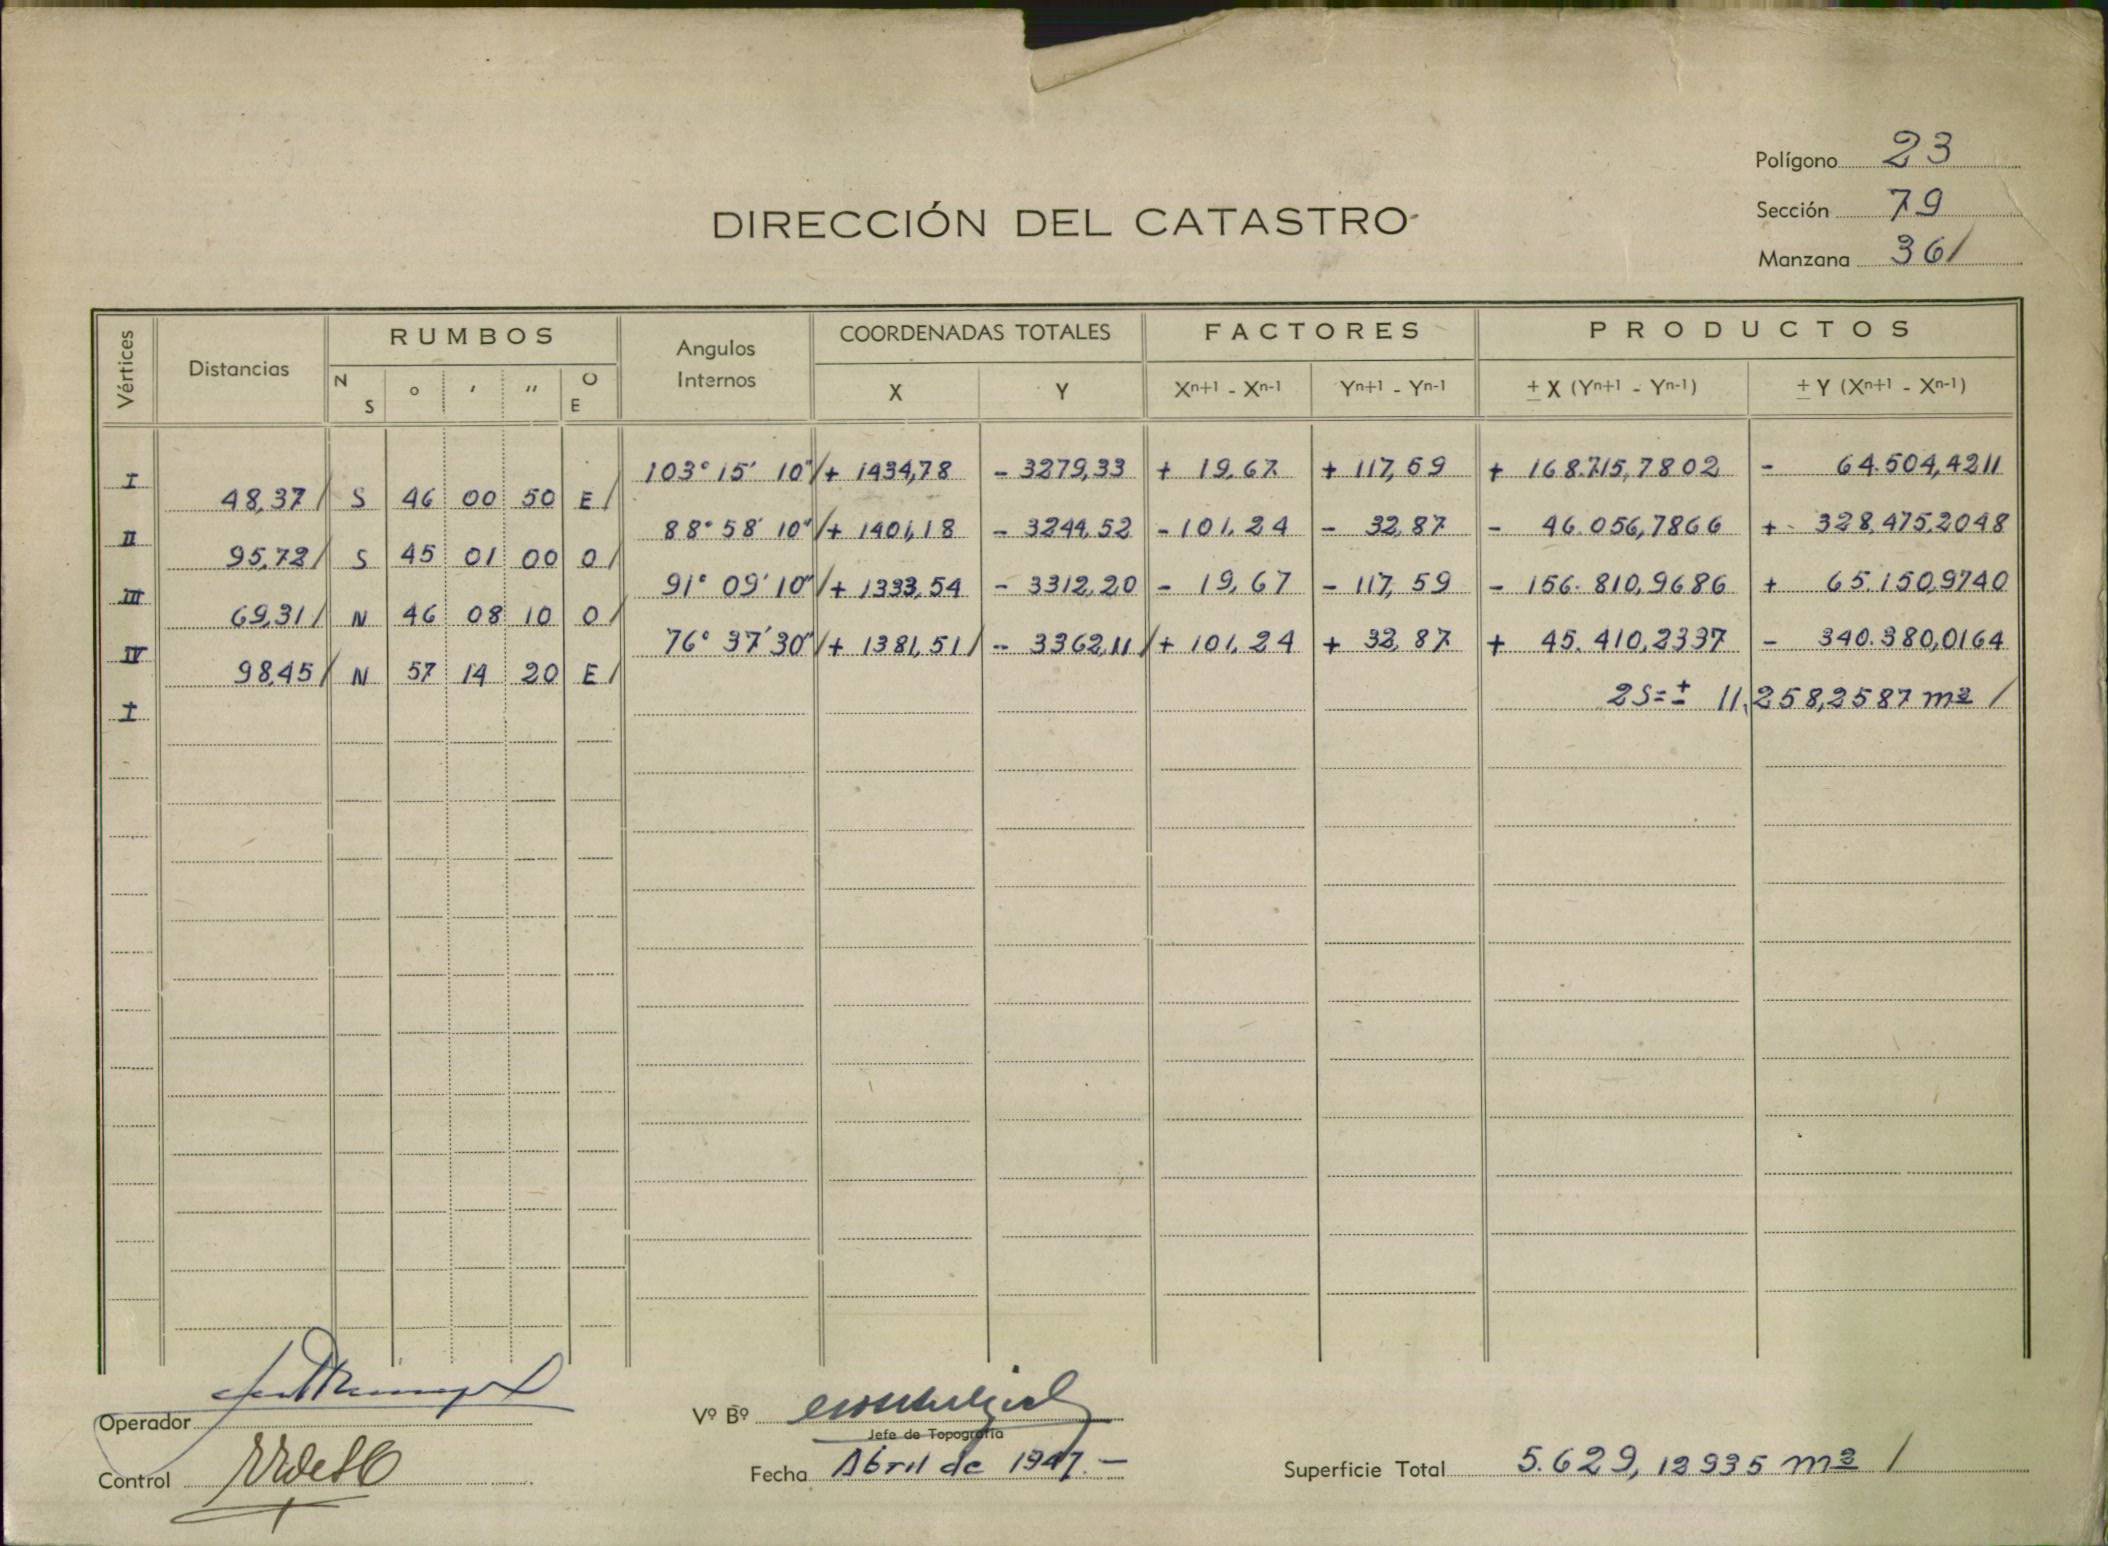 Polígono 23
Sección 79
Manzana 361
DIRECCIÓN DEL CATASTRO
Vértices Distancias RUMBOS Angulos Internos COORDENADAS TOTALES FACTORES PRODUCTOS
N S ° ' " O E X Y Xⁿ⁺¹ - Xⁿ⁻¹ Yⁿ⁺¹ - Yⁿ⁻¹ ± X (Yⁿ⁺¹ - Yⁿ⁻¹) ± Y (Xⁿ⁺¹ - Xⁿ⁻¹)
I 103° 15' 10" / + 1434,78 - 3279,33 + 19,67 + 117,59 + 168.715,7802 - 64.504,4211
48,37 / S 46 00 50 E /
II 88° 58' 10" / + 1401,18 - 3244,52 - 101,24 - 32,87 - 46.056,7866 + 328.475,2048
95,72 / S 45 01 00 O /
III 91° 09' 10" / + 1333,54 - 3312,20 - 19,67 - 117,59 - 156.810,9686 + 65.150,9740
69,31 / N 46 08 10 O /
IV 76° 37' 30" / + 1381,51 / - 3362,11 / + 101,24 + 32,87 + 45.410,2337 - 340.380,0164
98,45 / N 57 14 20 E /
I 2S=± 11.258,2587 m2 /
Operador
Control
Vº Bº
Jefe de Topografía
Fecha Abril de 1947.-
Superficie Total 5.629,12935 m2 /